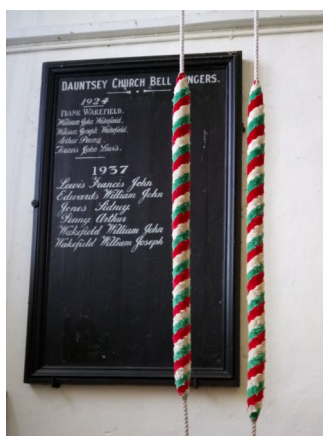 DAUNTSEY CHURCH BELL RINGERS.
1924
FRANK WAKEFIELD.
William John Wakefield.
William Joseph Wakefield.
Arthur Penny.
Francis John Lewis.
1937
Lewis Francis John
Edwards William John
Jones Sidney
Penny Arthur
Wakefield William John
Wakefield William Joseph